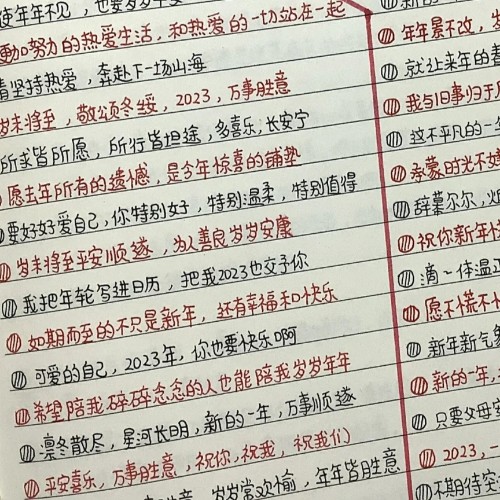 使年年不见，也要岁岁平
努力的热爱生活，和热爱的一切站在一起
请坚持热爱，奔赴下一场山海
岁末将至，敬颂冬绥，2023，万事胜意
所求皆所愿，所行皆坦途，多喜乐，长安宁
愿去年所有的遗憾，是今年惊喜的铺垫
要好好爱自己，你特别好，特别温柔，特别值得
岁末将至平安顺遂，为人善良岁岁安康
我把年轮写进日历，把我2023也交予你
如期而至的不只是新年，还有幸福和快乐
可爱的自己，2023年，你也要快乐啊
希望陪我碎碎念念的人也能陪我岁岁年年
凛冬散尽，星河长明，新的一年，万事顺遂
平安喜乐，万事胜意，祝你，祝我，祝我们
岁岁常欢愉，年年皆胜意
年年景不改，岁
就让来年的春
我与旧事归于
这不平凡的一
承蒙时光不
辞暮尔尔，
祝你新年
滴一体温
愿不慌不
新年新气
新的一年，
只要父母
2023，一
不期待突